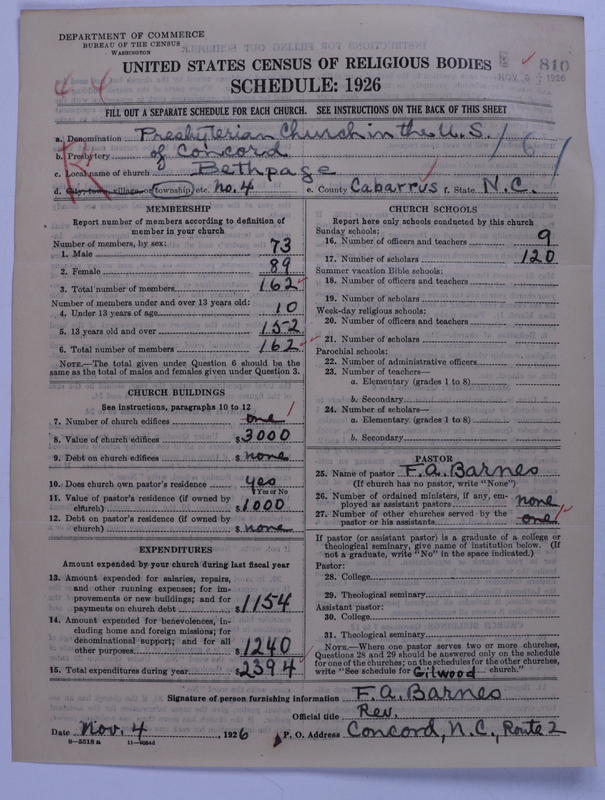 DEPARTMENT OF COMMERCE
BUREAU OF THE CENSUS
WASHINGTON
UNITED STATES CENSUS OF RELIGIOUS BODIES
SCHEDULE: 1926
810
NOV 1926
FILL OUT A SEPARATE SCHEDULE FOR EACH CHURCH. SEE INSTRUCTIONS ON THE BACK OF THIS SHEET
a. Denomination Presbyterian Church in the U.S.
b. Presbytery of Concord
167
c. Local name of church Bethpage
d. City, town, village, or township, etc. No. 4 e. County Cabarrus f. State N.C.
MEMBERSHIP
Report number of members according to definition of member in your church
Number of members, by sex:
1. Male 73
2. Female 89
3. Total number of members 162
Number of members under and over 13 years old:
4. Under 13 years of age 10
5. 13 years old and over 152
6. Total number of members 162
NOTE.—The total given under Question 6 should be the same as the total of males and females given under Question 3.
CHURCH BUILDINGS
See instructions, paragraphs 10 to 12
7. Number of church edifices one 1
8. Value of church edifices $3000
9. Debt on church edifices $ none
10. Does church own pastor's residence yes
Yes or No
11. Value of pastor's residence (if owned by church) $1000
12. Debt on pastor's residence (if owned by church) $ none
EXPENDITURES
Amount expended by your church during last fiscal year
13. Amount expended for salaries, repairs, and other running expenses; for improvements or new buildings; and for payments on church debt $1154
14. Amount expended for benevolences, including home and foreign missions; for denominational support; and for all other purposes $1240
15. Total expenditures during year $2394
CHURCH SCHOOLS
Report here only schools conducted by this church
Sunday schools:
16. Number of officers and teachers 9
17. Number of scholars 120
Summer vacation Bible schools:
18. Number of officers and teachers
19. Number of scholars
Week-day religious schools:
20. Number of officers and teachers
21. Number of scholars
Parochial schools:
22. Number of administrative officers
23. Number of teachers—
a. Elementary (grades 1 to 8)
b. Secondary
24. Number of scholars—
a. Elementary (grades 1 to 8)
b. Secondary
PASTOR
25. Name of pastor F. A. Barnes
(If church has no pastor, write "None")
26. Number of ordained ministers, if any, employed as assistant pastors none
27. Number of other churches served by the pastor or his assistants one 1
If pastor (or assistant pastor) is a graduate of a college or theological seminary, give name of institution below. (If not a graduate, write "No" in the space indicated.)
Pastor:
28. College
29. Theological seminary
Assistant pastor:
30. College
31. Theological seminary
NOTE.—Where one pastor serves two or more churches, Questions 28 and 29 should be answered only on the schedule for one of the churches; on the schedules for the other churches, write "See schedule for Gilwood church."
Signature of person furnishing information F. A. Barnes
Official title Rev.
Date Nov. 4, 1926 P. O. Address Concord, N.C., Route 2
8—5518 a